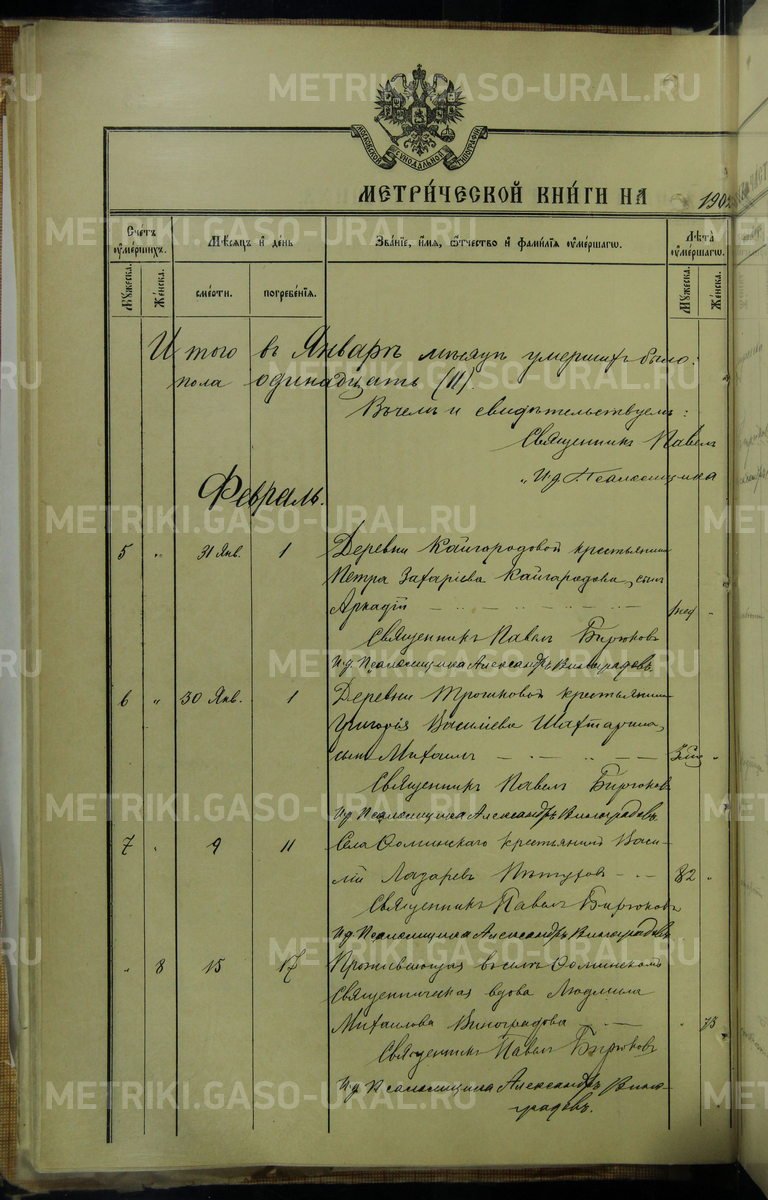 МОСКОВСКОЙ СѴНОДАЛЬНОЙ ТИПОГРАФІИ
МЕТРИ́ЧЕСКОЙ КНИ́ГИ НА 190
Сче́тъ ᲂуме́ршихъ.
Мѣ́сяцъ и҆ де́нь
Зва́нїе, и҆́мя, ѻ҆́тчество и҆ фами́лїя ᲂуме́ршагѡ.
Лѣ́та ᲂуме́ршагѡ.
Мꙋ́жеска.
Же́нска.
сме́рти.
погребе́нїя.
Мꙋ́жеска.
Же́нска.
Итого въ Январѣ мѣсяцѣ умершихъ было:
пола одинадцать (11).
Въ чемъ и свидѣтельствуемъ:
Священникъ Павелъ
„И. д. Псаломщика
Февраль.
5 „ 31 Янв. 1 Деревни Кайгородовой крестьянина
Петра Захаріева Кайгородова, сынъ
Аркадій
Священникъ Павелъ Бирюковъ
И. д. Псаломщика Александръ Виноградовъ
6 „ 30 Янв. 1 Деревни крестьянина
Григорія Василіева
сынъ Михаилъ
Священникъ Павелъ Бирюковъ
И. д. Псаломщика Александръ Виноградовъ
7 „ 9 11 Села Фоминскаго крестьянинъ Васи-
лій Лазаревъ Пѣтуховъ 82 „
Священникъ Павелъ Бирюковъ
И. д. Псаломщика Александръ Виноградовъ
„ 8 15 17 Проживающая въ селѣ Фоминскомъ
Священническая вдова Людмила
Михаилова Виноградова „ 73
Священникъ Павелъ Бирюковъ
И. д. Псаломщика Александръ Вино-
градовъ.
METRIKI.GASO-URAL.RU